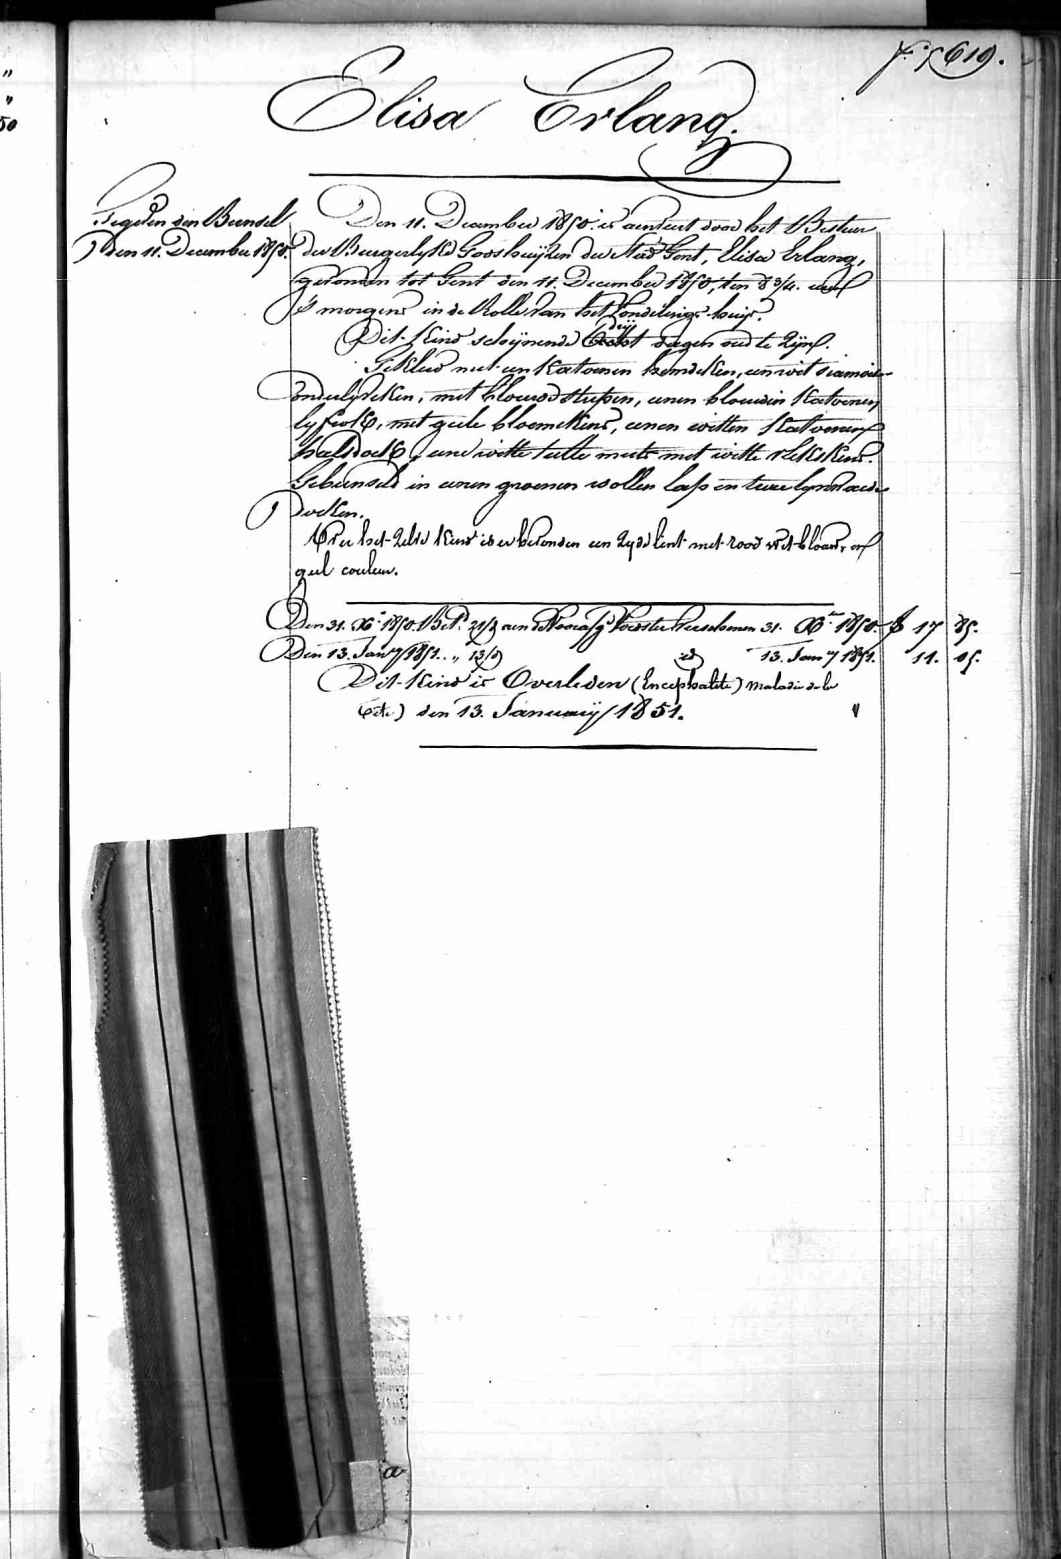 f° 619.
Elisa Erlang.
Gegeven den Bunsel
den 11. December 1850.
Den 11. December 1850. is aenveert door het Bestuer
der Burgerlyke Godshuyzen der Stad Gent, Elisa Erlang,
gevonden tot Gent den 11. December 1850, ten 8 3/4. uren
's morgens in de Rolle van het Vondelings-huys.
Dit Kind schynende dry dagen oud te zyn.
Gekleed met een Katoenen hemdeken, een wit siamoise
onderlyveken, met blauwe streepen, eenen blauwen Katoenen
lyfrok, met geele bloemekens, eenen witten Katoenen
halsdoek, eene witte tulle muts met witte
Gebunseld in eenen groenen wollen lap en twee lynwaede
doeken.
Op het zelve Kind is er bevonden een zyde lint met rood wit blauw, en
geel couleur.
Den 31. Xbre 1850. Bet. 21/2 aen de Voedster verschenen 31. Xbre 1850. f 17 85.
Den 13. Jany 1851. " 13/2 id 13. Jany 1851. 11. 05.
Dit Kind is Overleden (Encephalite) maladie de la
tête) den 13. January 1851. "
a
"
"
50